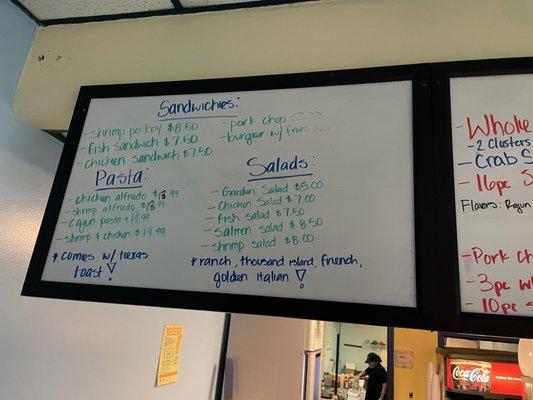 Sandwiches:
- shrimp po boy $8.50
- fish sandwich $7.50
- chicken sandwich $7.50
- pork chop
- burgiar w/ fries
Pasta:
- chicken alfredo $13.99
- shrimp alfredo $13.99
- cajun pasta $14.99
- shrimp & chicken $14.99
* comes w/ texas
toast!
Salads:
- Garden Salad $5.00
- Chicken Salad $7.00
- fish Salad $7.50
- Salmon salad $8.50
- shrimp salad $8.00
* ranch, thousand island, french,
golden italian!
- Whole
- 2 Clusters
- Crab
- 16pc
Flavors:
- Pork
- 3pc
- 10pc
Coca-Cola